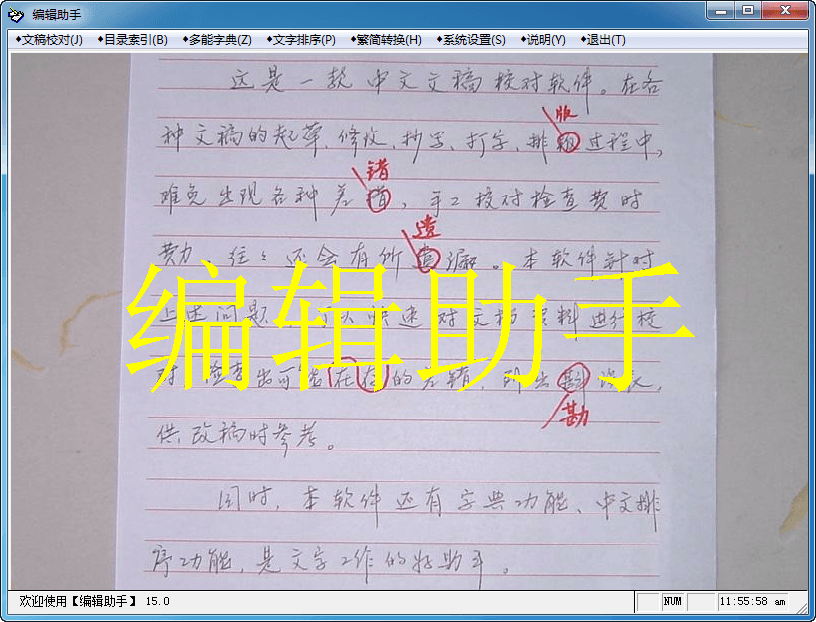 编辑助手
◆文稿校对(J) ◆目录索引(B) ◆多能字典(Z) ◆文字排序(P) ◆繁简转换(H) ◆系统设置(S) ◆说明(Y) ◆退出(T)
这是一款中文文稿校对软件。在各
版
种文稿的起草、修改、抄写、打字、排过程中,
错
难免出现各种差措,手工校对检查费时
遗
费力,往往还会有所漏。本软件针对
编辑助手
上述问题,可以快速对文档资料进行校
对,检查出可能在存的差错,列出斟误表,
勘
供改稿时参考。
同时,本软件还有字典功能、中文排
序功能,是文字工作的好助手。
欢迎使用【编辑助手】 15.0 NUM 11:55:58 am